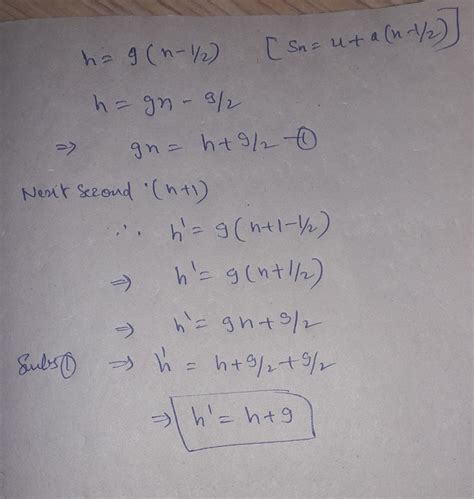 h = g(n-1/2) [Sn = u + a(n-1/2)]
h = gn - g/2
⇒ gn = h + g/2 -①
Next second (n+1)
∴ h' = g(n+1-1/2)
⇒ h' = g(n+1/2)
⇒ h' = gn + g/2
Subs① ⇒ h' = h + g/2 + g/2
⇒ h' = h + g